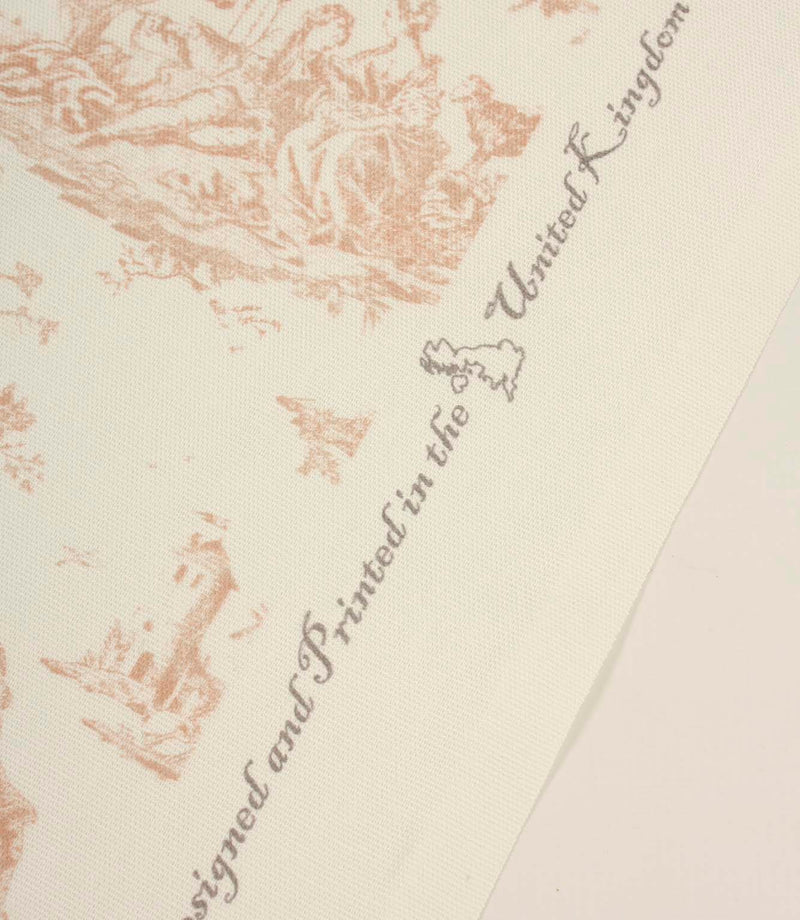 esigned and Printed in the United Kingdom